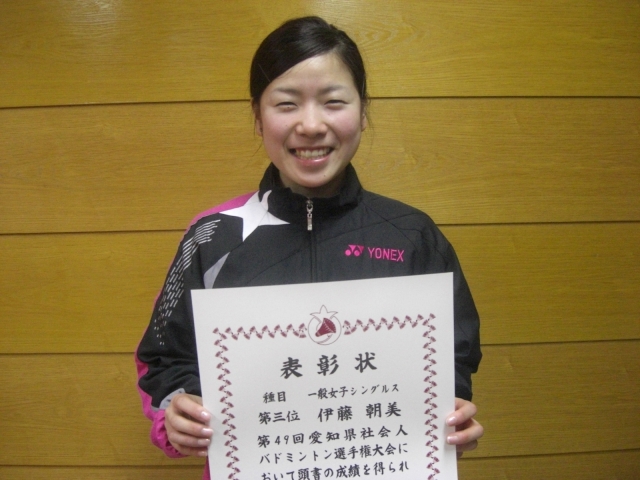 YONEX
表彰状
種目 一般女子シングルス
第三位 伊藤 朝美
第49回愛知県社会人
バドミントン選手権大会に
おいて頭書の成績を得られ